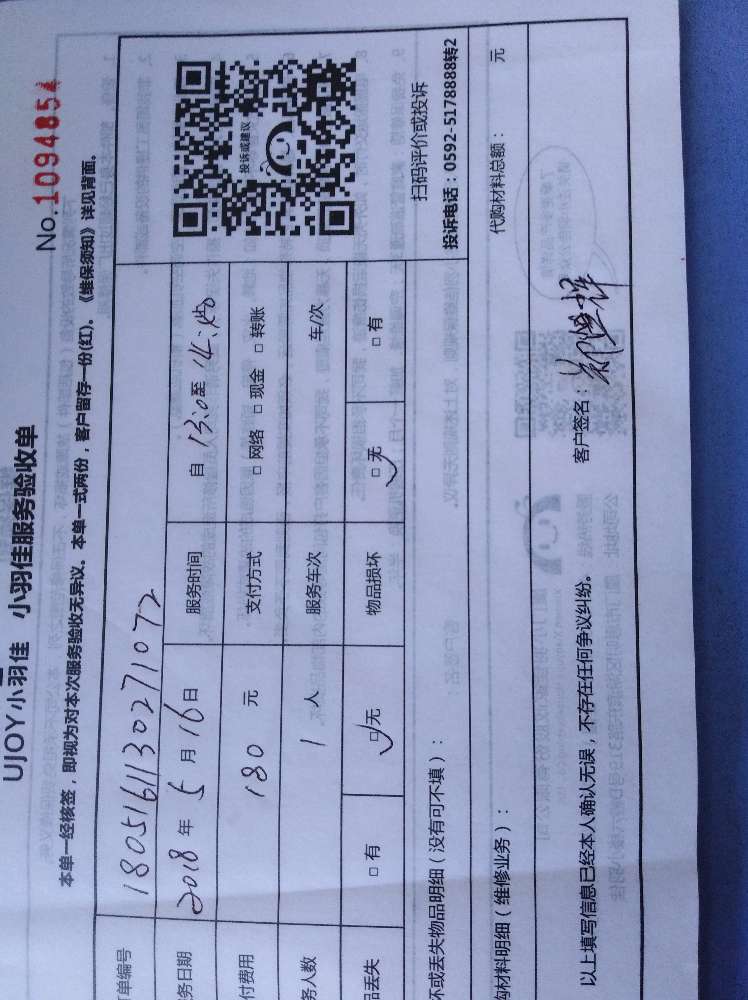 UJOY小羽佳 小羽佳服务验收单
No.1094854
本单一经核签，即视为对本次服务验收无异议。本单一式两份，客户留存一份(红)。《维保须知》详见背面。
单编号 1805161130271072
务日期 2018 年 5 月 16 日 服务时间 自 13:0 至 14:50
付费用 180 元 支付方式 □ 网络 □ 现金 □ 转账
务人数 1 人 服务车次 车/次
品丢失 □ 有 □ 无 物品损坏 □ 无 □ 有
投诉或建议
扫码评价或投诉
投诉电话：0592-5178888转2
坏或丢失物品明细（没有可不填）：
购材料明细（维修业务）： 代购材料总额： 元
以上填写信息已经本人确认无误，不存在任何争议纠纷。 客户签名：